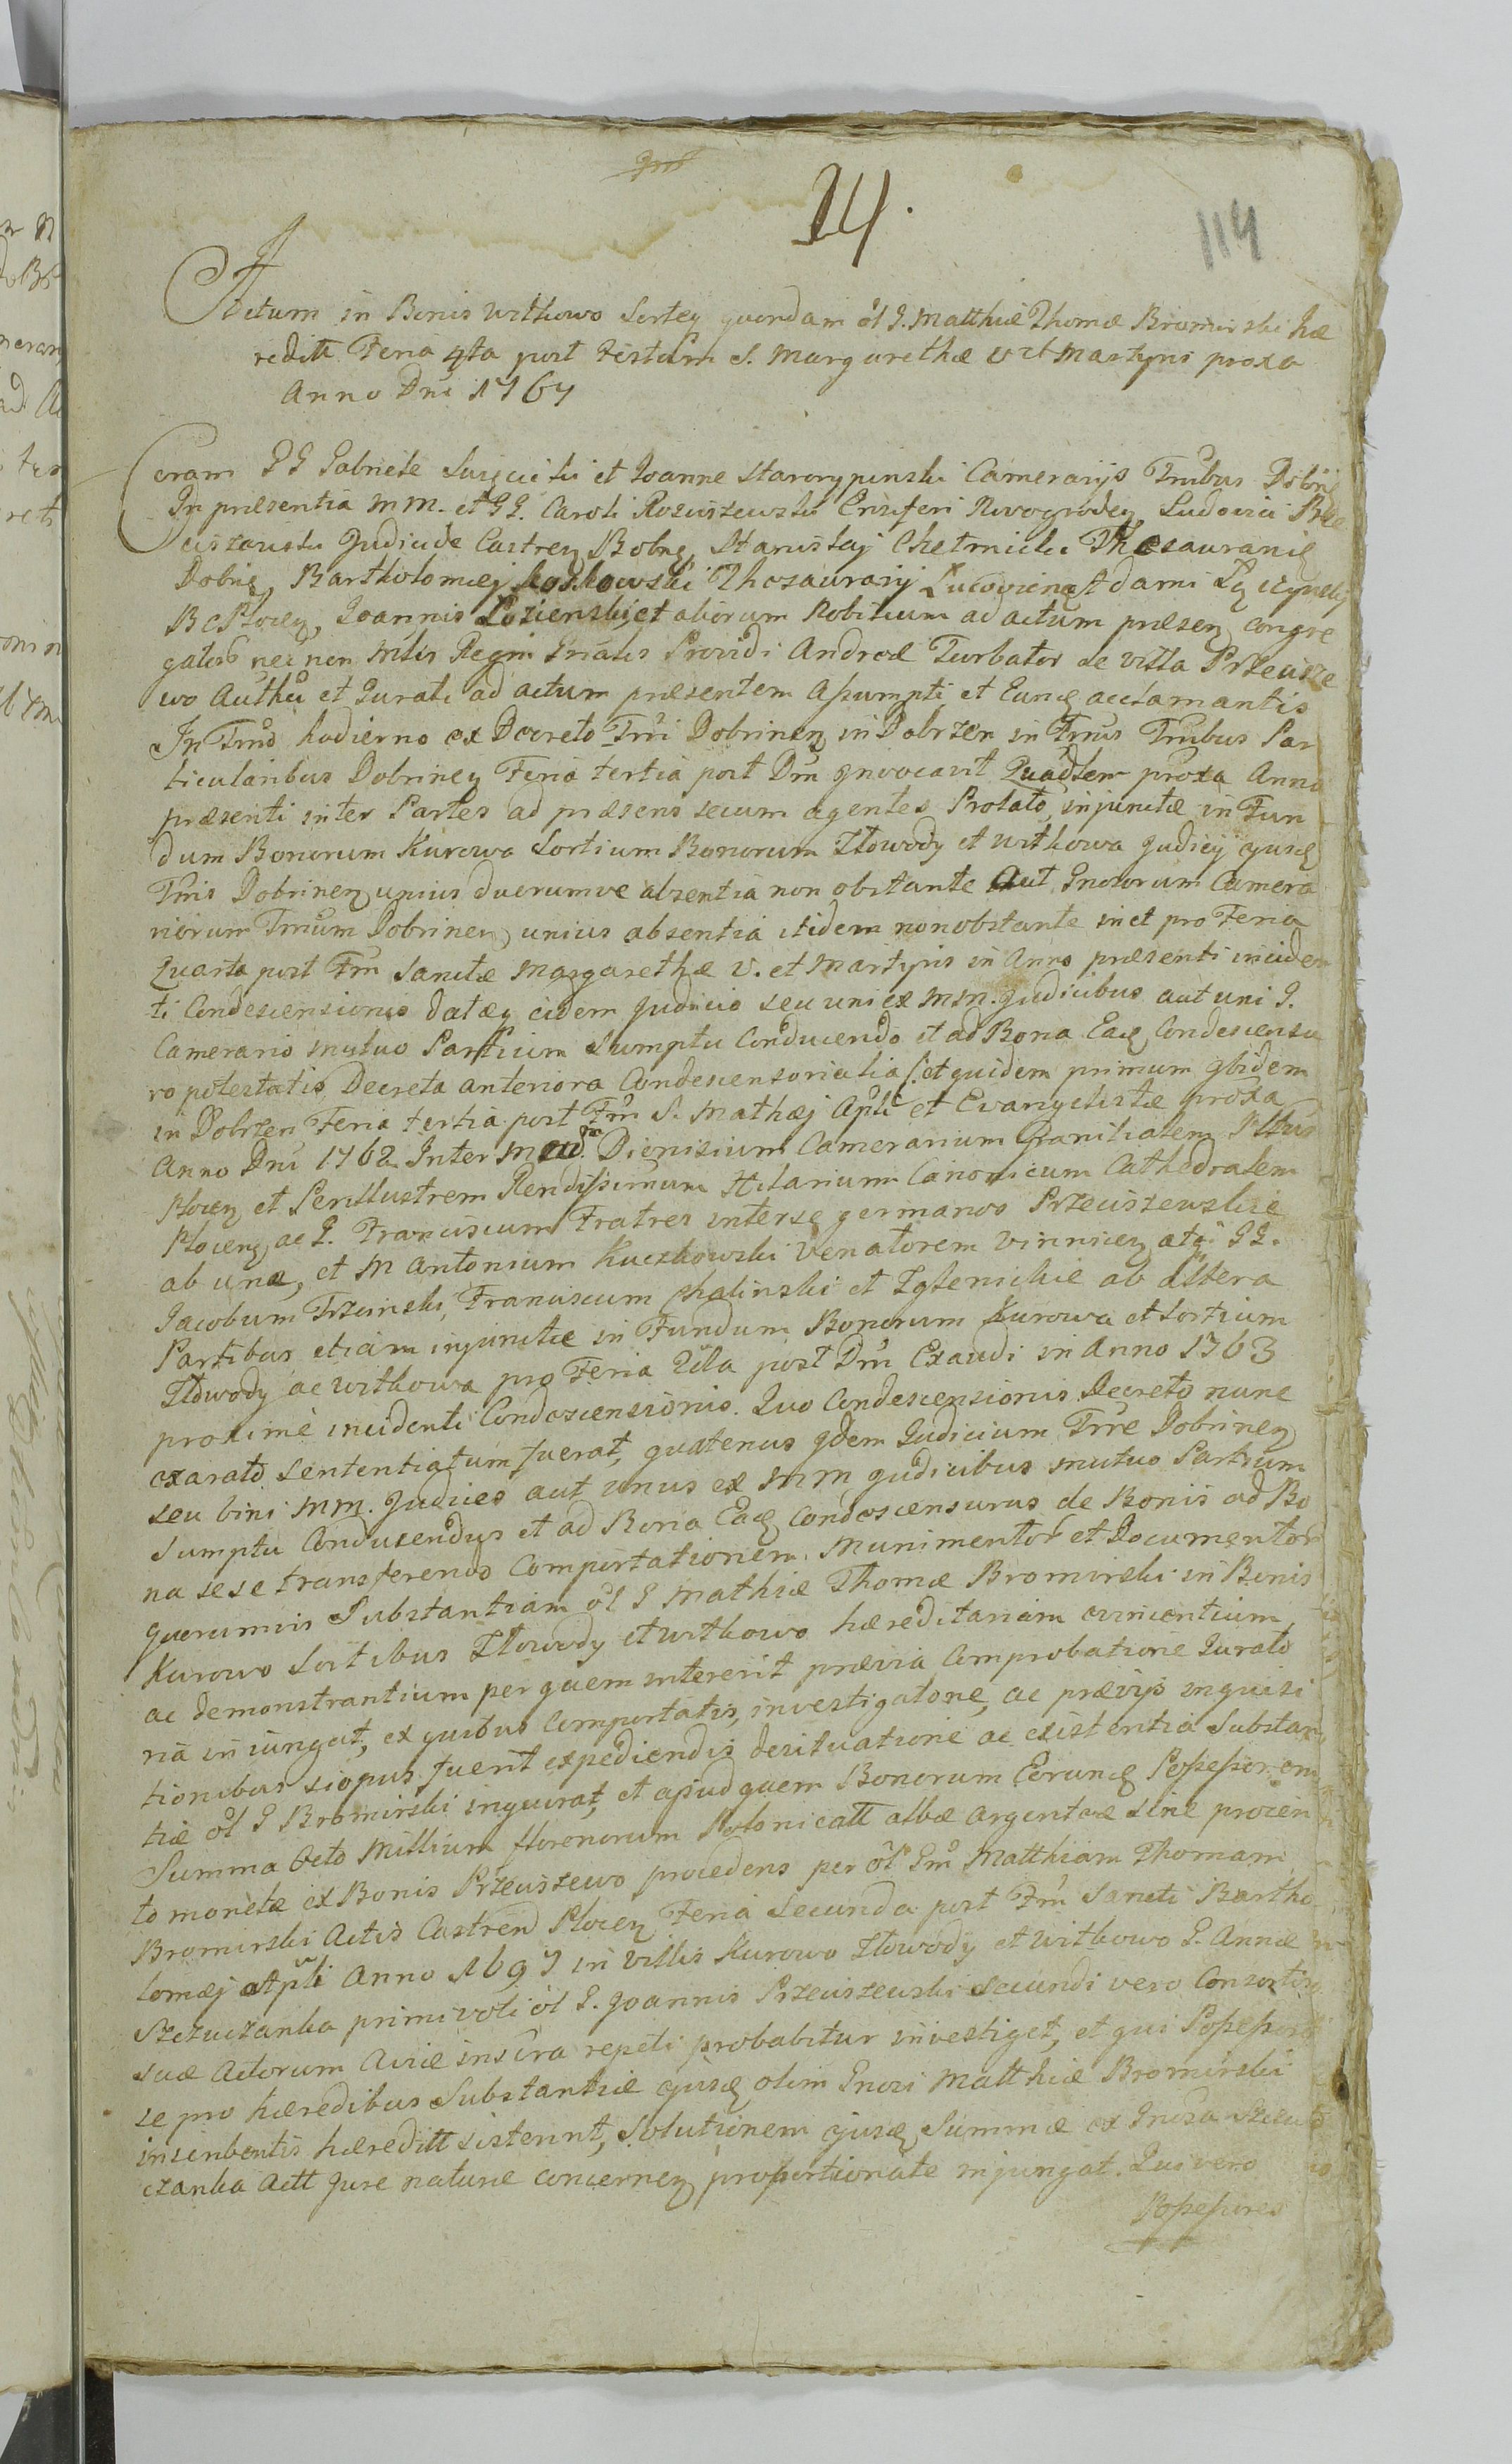 14.
114
Actum in Bonis Witkowo Sorteq quondam ol G. Matthiæ Thomæ Bromirski hæ
reditt Feria 4ta post Festum S. Margarethæ V et Martyris proxa
Anno Dni 1764
Coram GG Gabriele et Joanne Starorypinski Camerarijs Trribus Dobrineq
In præsentia MM. et GG. Caroli Rosciszewski Ensiferi Novogrodeq Ludovici Prze
ciszewski Judicis Castreq Bobrq, Stanislaj Chelmicki Thesaurarij
Dobrieq, Bartholomæj Thesaurarij
Bc Ploceq, Joannis et aliorum Nobilium ad actum præseq congre
gator nec non Mlis Regni Gnalis Providi Andreæ Turbator de villa Przecisze
wo Authci et Jurati ad actum præsentem assumpti et Eumq acclamantis
In Tmo hodierno ex Decreto Trri Dobrineq in Dobrzen in Tmis Trribus Par
ticularibus Dobrineq Feria tertia post Dm Invocavit Quadlem proxa Anno
præsenti inter Partes ad præsens secum agentes Prolato, injunctæ in Fun
dum Bonorum Kurowa Sortium Bonorum Zlowody et Witkowa Judicij ejusq
Trris Dobrineq unius duorumve absentia non obstante Aut Gnosorum Camera
riorum Trrium Dobrineq unius absentia itidem non obstante in et pro Feria
Quarta post Fm Sanctæ Margarethæ V. et Martyris in Anno præsenti inciden
ti Condescensionis datæq eidem Judicio seu uni ex MM. Judicibus aut uni G.
Camerario mutuo Partium Sumptu Conducendo et ad Bona Eaq Condescensu
ro potestatis Decreta anteriora Condescensorialia /: et quidem primum ibidem
in Dobrzen Feria tertia post Fm S. Mathæj Apli et Evangelistæ proxa
Anno Dni 1762 Inter Dionisium Camerarium Granitialem
Ploceq et Perillustrem Rendissimum Hilarium Canonicum Cathedralem
Ploceq ac G. Franciscum Fratres inter se germanos Przeciszewskie
ab una, et M Antonium Kuczkowski Venatorem Vinniceq atq GG.
Jacobum Trzcinski, Franciscum Chalinski et Zglenickie ab altera
Partibus etiam injunctæ in Fundum Bonorum Kurowa et Sortium
Zlowody ac Witkowa pro Feria 2da post Dm Exaudi in Anno 1763
proxime incidenti Condescensionis. Quo Condescensionis Decreto nunc
exarato sententiatum fuerat, quatenus idem Judicium Trre Dobrineq
seu bini MM. Judices aut unus ex MM Judicibus mutuo Partium
Sumptu Conducendus et ad Bona Eaq Condescensurus de Bonis ad Bo
na sese transferendo Comportationem Munimentor et Documentor
quorumvis Substantiam ol G Mathiæ Thomæ Bromirski in Bonis
Kurowo Sortibus Zlowody et Witkowo hæreditariam evincentium,
ac demonstrantium per quem intererit prævia Comprobatione Jurato
ria injungat, ex quibus Comportatis, investigatone, ac prævijs inquisi
tionibus si opus fuerit expediendis desituatione ac existentia Substan
tiæ ol G Bromirski inquirat, et apud quem Bonorum Eorumq Possessorem
Summa Octo Millium florenorum Polonicall albæ argenteæ sine procen
to monetæ ex Bonis Przeciszewo procedens per ol Gm Matthiam Thomam
Bromirski Actis Castren Ploceq Feria Secunda post Fm Sancti Bartho
lomæj Apli Anno 1697 in villis Kurowo Zlowody et Witkowo G. Annæ
Szczuczanka primi voti ol G. Joannis Przeciszewski Secundi vero Consortis
suæ Actorum Aviæ inscra repeti probabitur investiget, et qui Possessores
se pro hæredibus Substantiæ ejusq olim Gnosi Matthiæ Bromirski
inscribentis hæreditt sisterint, Solutionem ejusq Summæ ex Inscra Szczu
czanka Actt Jure naturæ concerneq proportionate injungat. Qui vero
Possessores